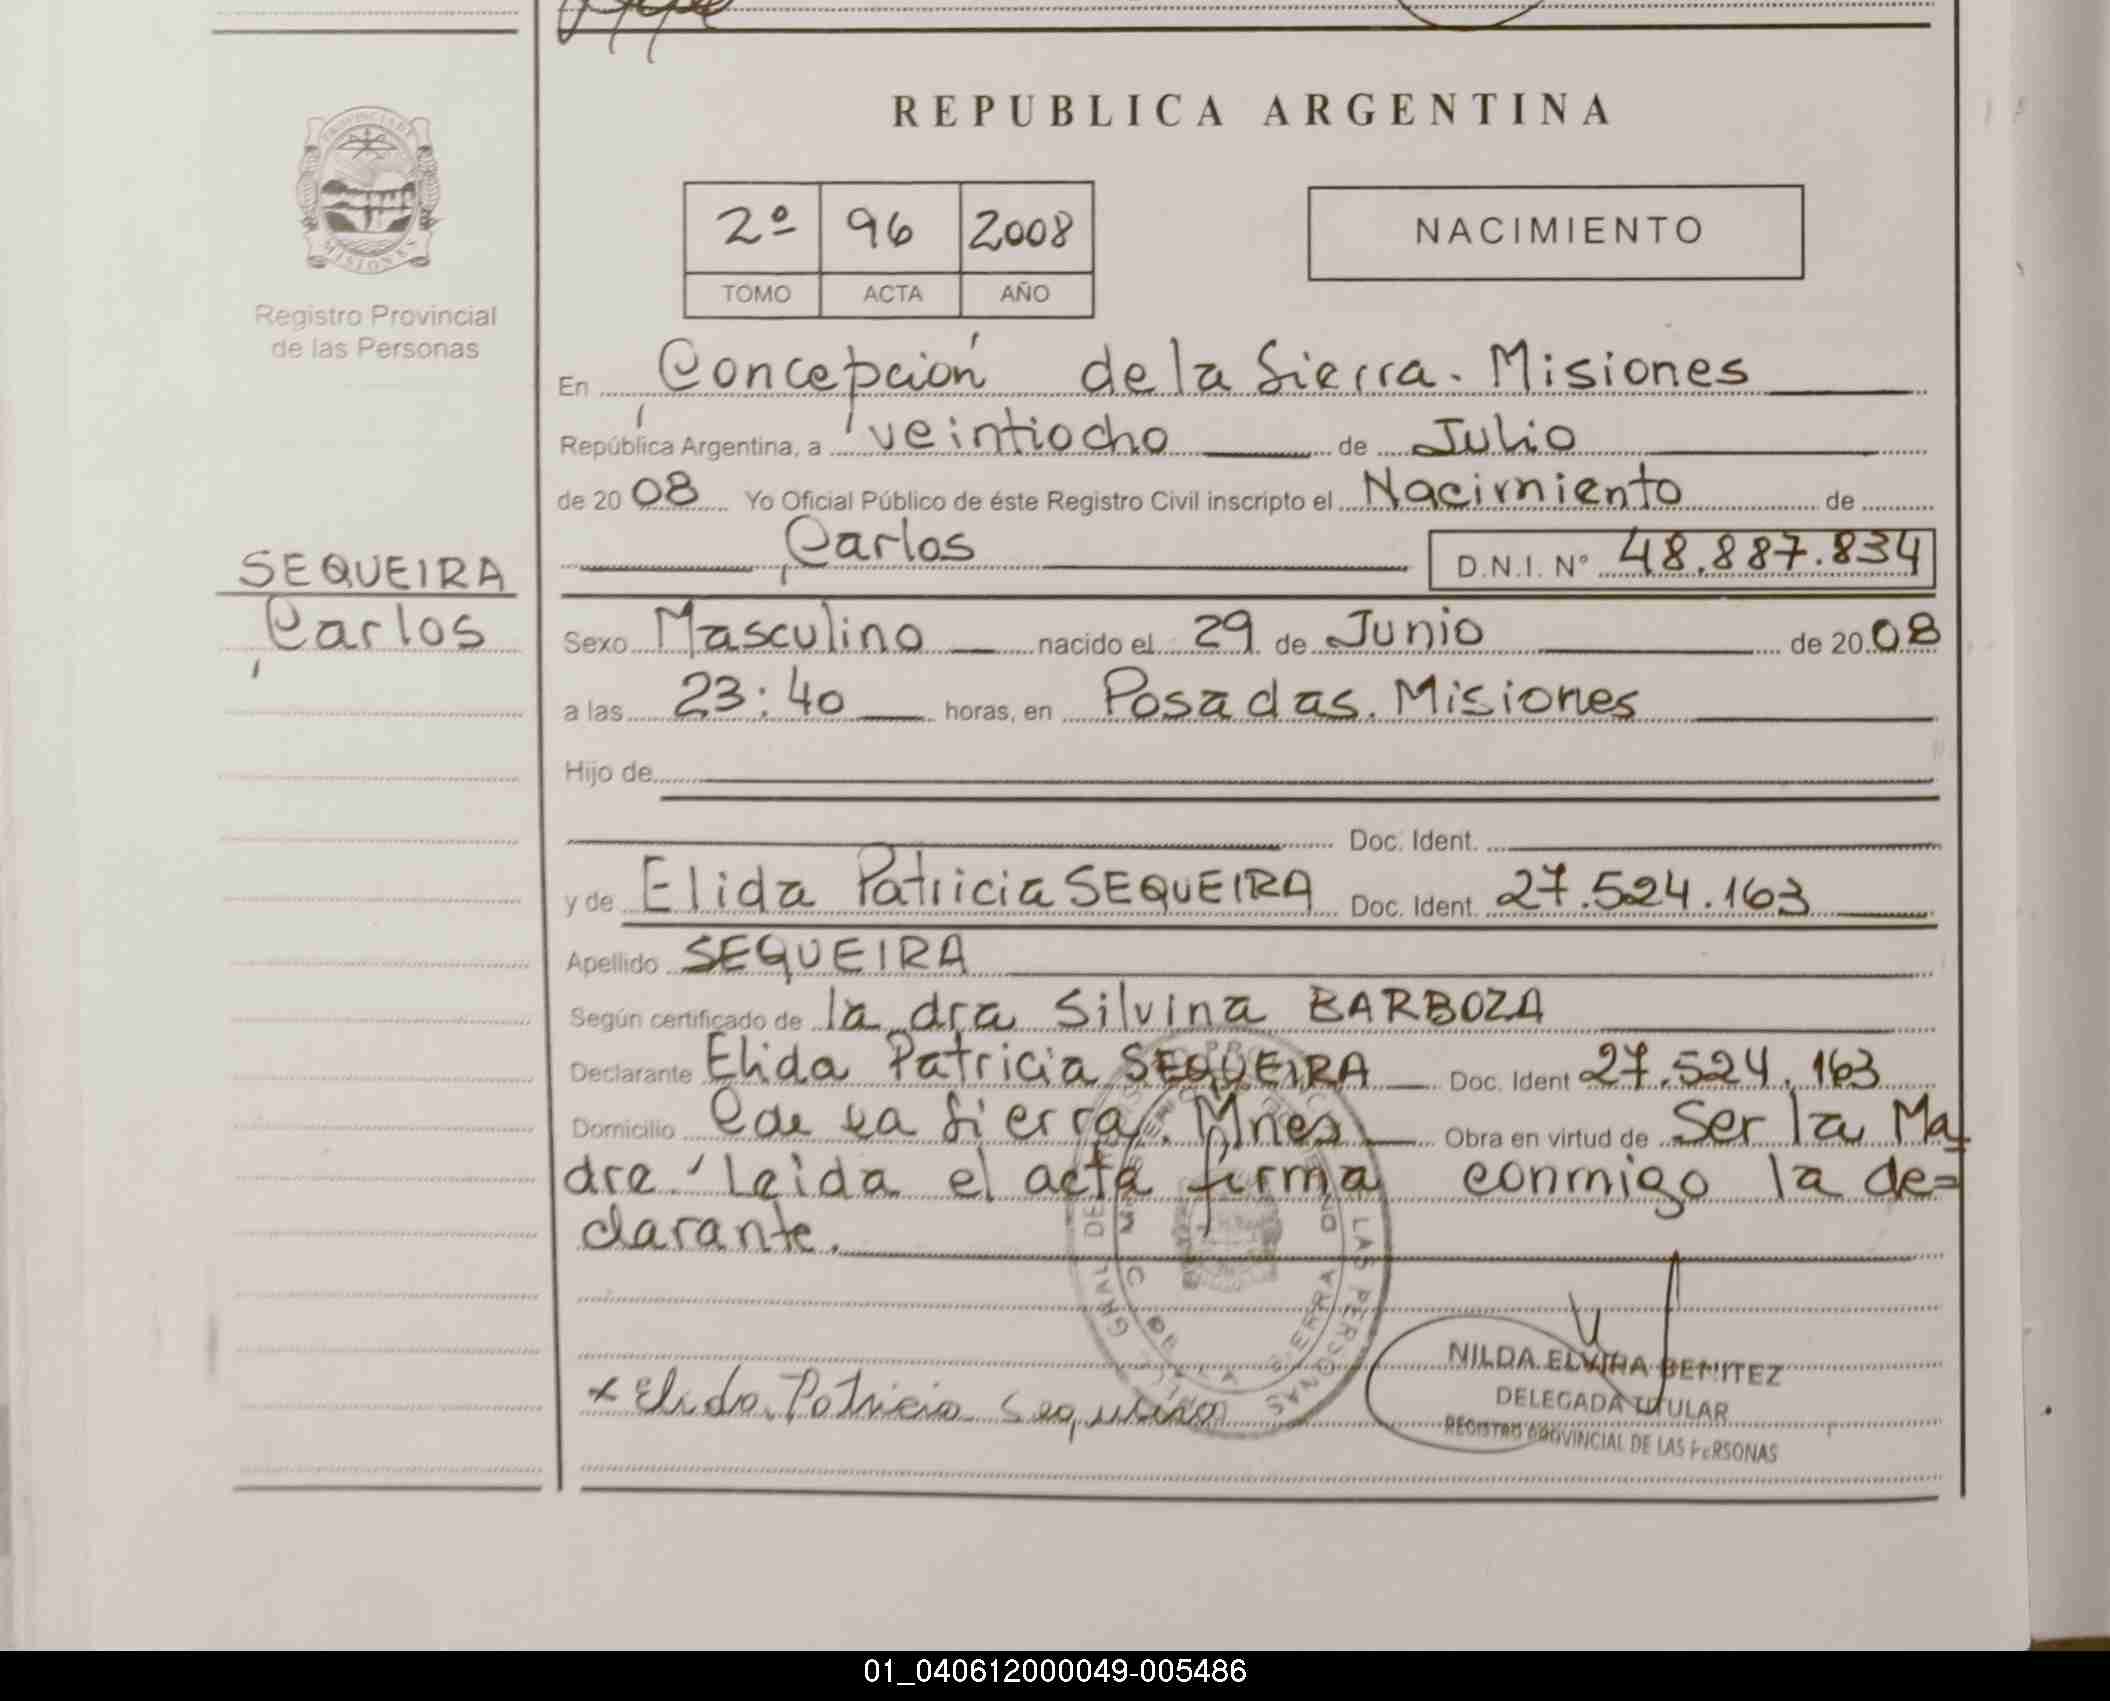 REPUBLICA ARGENTINA
PROVINCIA DE
MISIONES
Registro Provincial
de las Personas
2º 96 2008
TOMO ACTA AÑO
NACIMIENTO
En Concepción de la Sierra. Misiones
República Argentina, a veintiocho de Julio
de 2008 Yo Oficial Público de éste Registro Civil inscripto el Nacimiento de
Carlos D.N.I. Nº 48.887.834
SEQUEIRA
Carlos
Sexo Masculino nacido el 29 de Junio de 2008
a las 23:40 horas, en Posadas. Misiones
Hijo de
Doc. Ident.
y de Elida Patricia SEQUEIRA Doc. Ident. 27.524.163
Apellido SEQUEIRA
Según certificado de la dra Silvina BARBOZA
Declarante Elida Patricia SEQUEIRA Doc. Ident 27.524.163
Domicilio C de la Sierra. Mnes Obra en virtud de Ser la Ma
dre. Leida el acta firma conmigo la de=
clarante.
LAS PERSONAS
DE LA SIERRA
x Elida Patricia Sequeira
NILDA ELVIRA BENITEZ
DELEGADA TITULAR
REGISTRO PROVINCIAL DE LAS PERSONAS
01_040612000049-005486